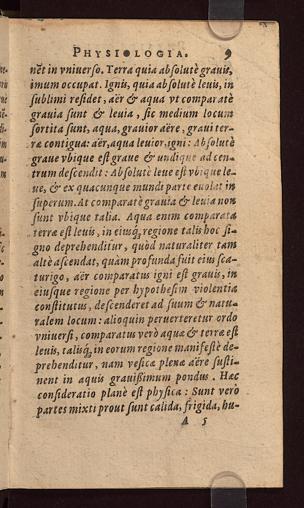 PHYSIOLOGIA. 9
nēt in vniuerso. Terra quia absolutè grauis,
imum occupat. Ignis, quia absolutè leuis, in
sublimi residet, aër & aqua vt comparatè
grauia sunt & leuia, sic medium locum
sortita sunt, aqua, grauior aëre, graui ter-
ræ contigua: aër, aqua leuior, igni: Absolutè
graue vbique est graue & vndique ad cen-
trum descendit: Absolutè leue est vbique le-
ue, & ex quacunque mundi parte euolat in
superum. At comparatè grauia & leuia non
sunt vbique talia. Aqua enim comparata
terræ est leuis, in eiusq; regione talis hoc si-
gno deprehenditur, quòd naturaliter tam
altè ascendat, quàm profunda fuit eius sca-
turigo, aër comparatus igni est grauis, in
eiusque regione per hypothesim violentiæ
constitutus, descenderet ad suum & natu-
ralem locum: alioquin peruerteretur ordo
vniuersi, comparatus verò aquæ & terræ est
leuis, talisq; in eorum regione manifestè de-
prehenditur, nam vesicæ plenæ aëre susti-
nent in aquis grauißimum pondus. Hæc
consideratio planè est physica: Sunt verò
partes mixti prout sunt calida, frigida, hu-
A 5